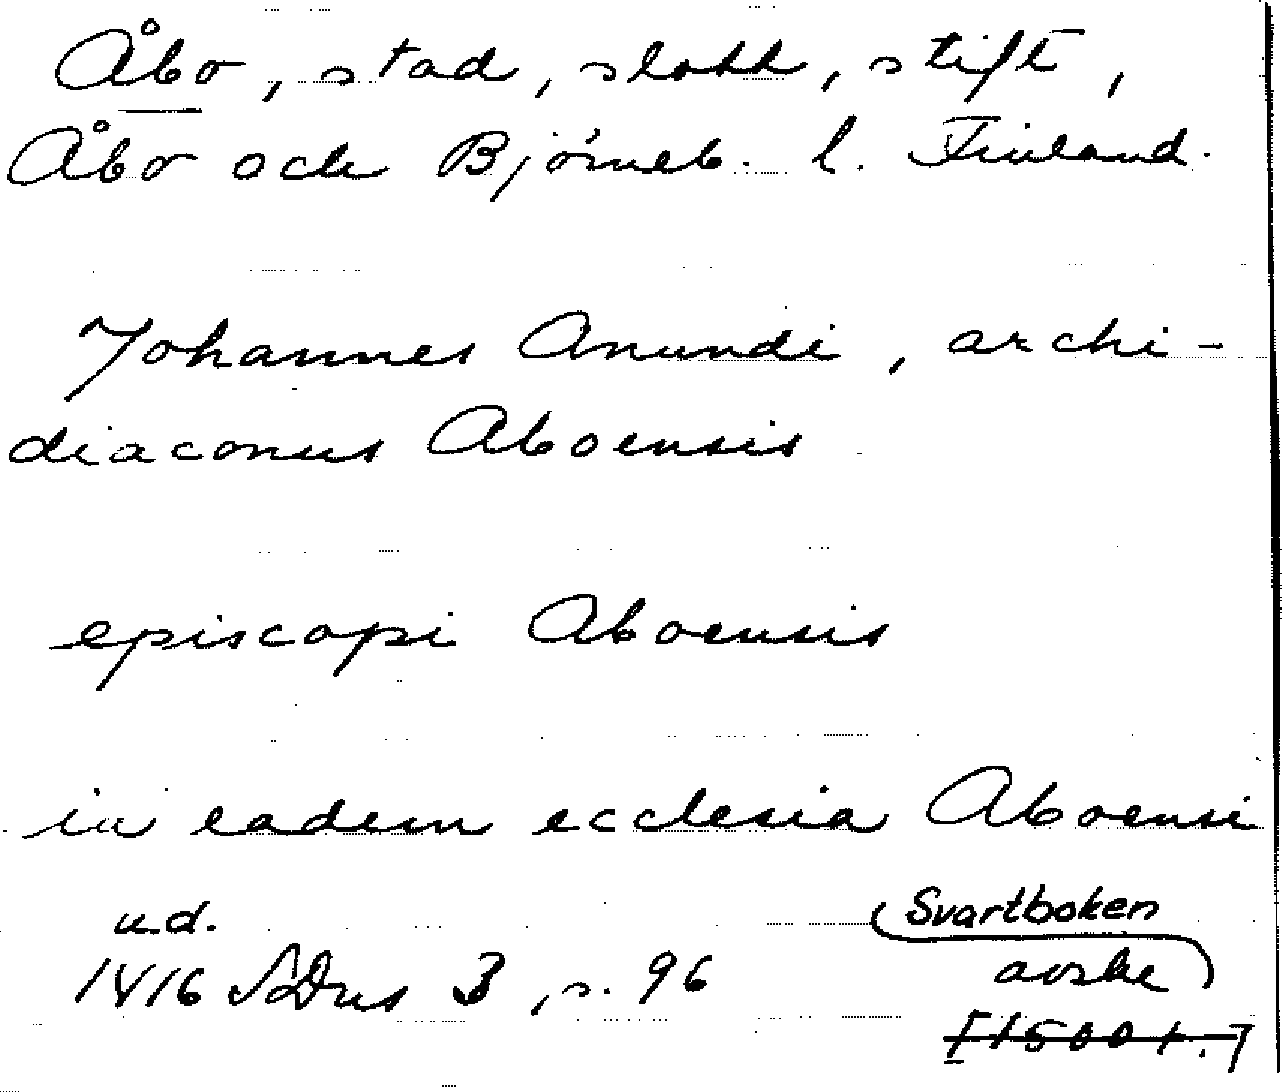 Åbo, stad, slott, stift,
Åbo och Björneb. l. Finland.
Johannes Anundi, archi-
diaconus Aboensis
episcopi Aboensis
in eadem ecclesia Aboensi
u.d. Svartboken
1416 SDns 3, s. 96 avskr
[1500t.]